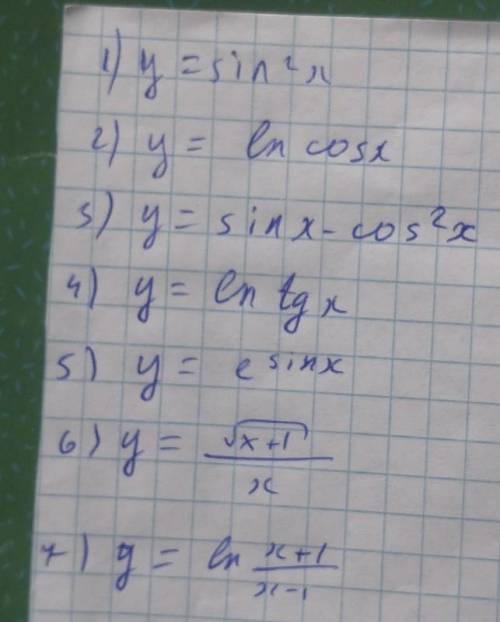 1) y = sin²x
2) y = ln cosx
3) y = sinx - cos²x
4) y = ln tgx
5) y = e^sinx
6) y = √(x+1) / x
7) y = ln (x+1)/(x-1)